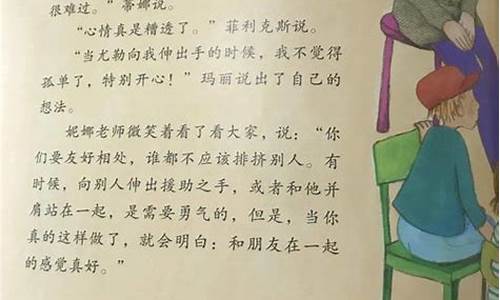 很难过。”蒂娜说。
“心情真是糟透了。”菲利克斯说。
“当尤勒向我伸出手的时候，我不觉得
孤单了，特别开心！”玛丽说出了自己的
想法。
妮娜老师微笑着看了看大家，说：“你
们要友好相处，谁都不应该排挤别人。有
时候，向别人伸出援助之手，或者和他并
肩站在一起，是需要勇气的，但是，当你
真的这样做了，就会明白：和朋友在一起
的感觉真好。”